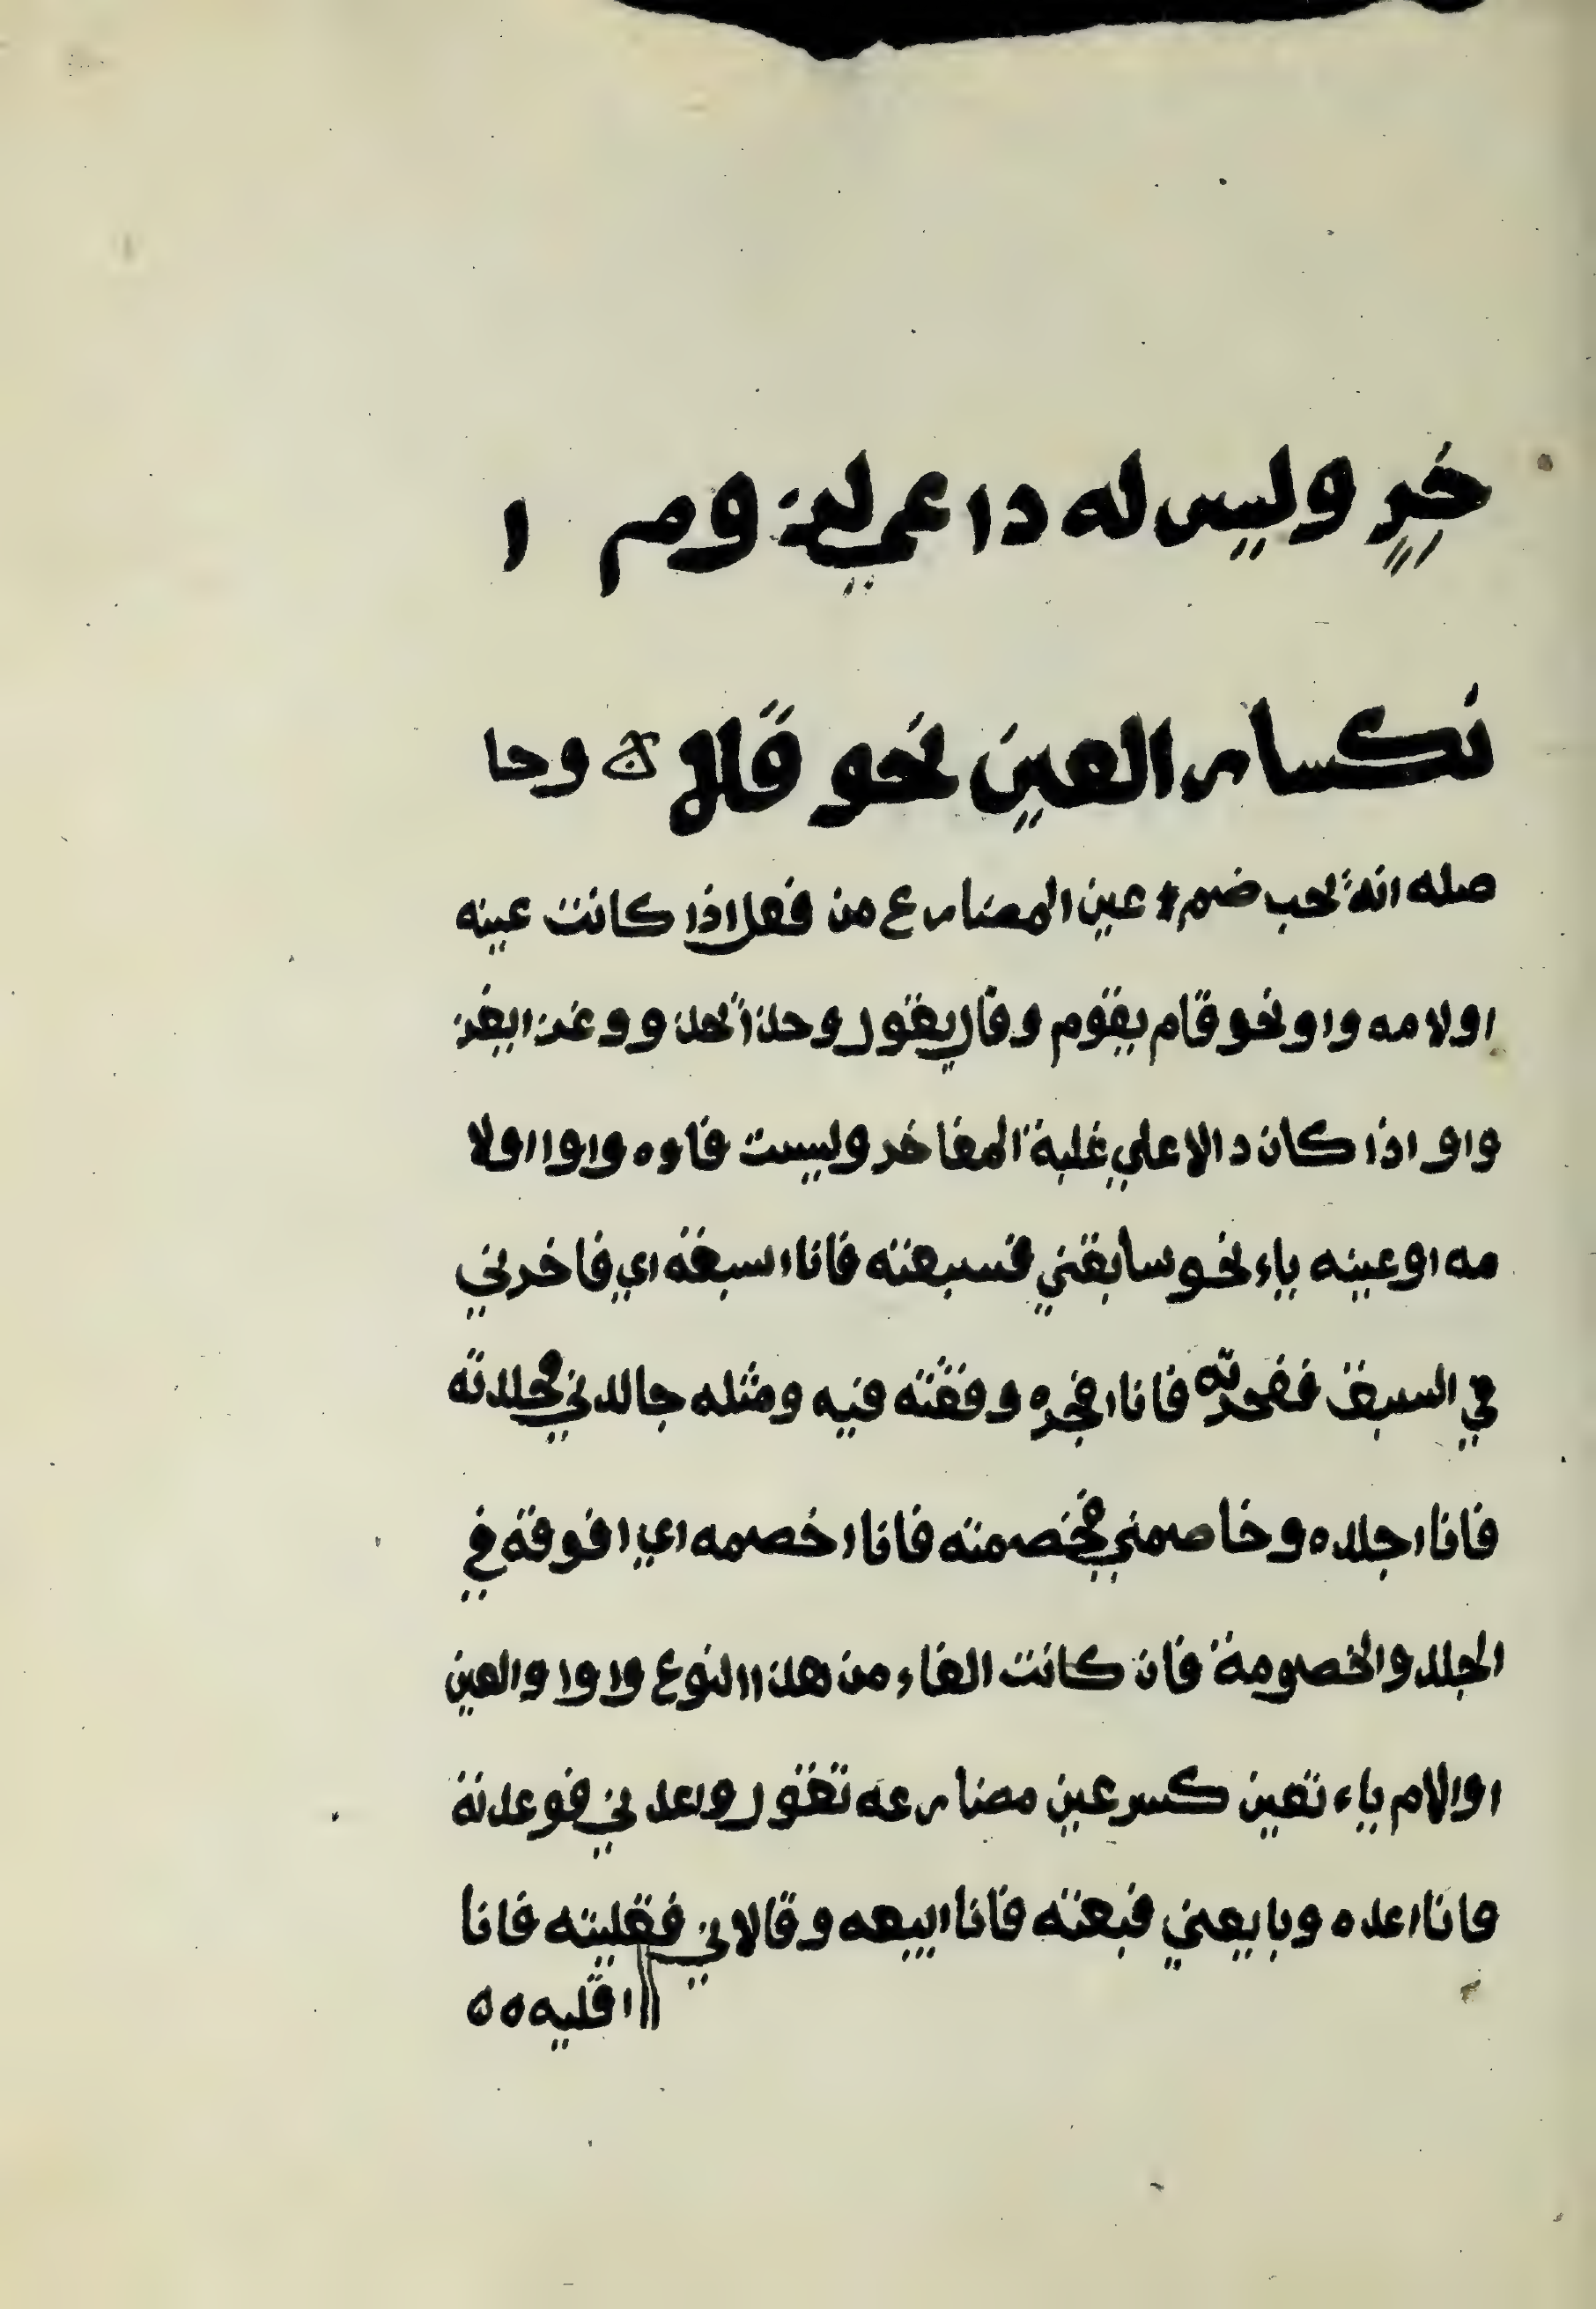 خر وليس له داعي لز وم ا
نكسار العين نحو قلا ۞ وحا
صله انه يجب ضم عين المضارع من فعل اذا كانت عينه
او لامه واو نحو قام يقوم وقال يقول وحذا يحذ وو غذا يغذ
واو اذا كان دالا علي غلبة المفاخر وليست فاوه واوا اولا
مه او عينه ياء نحو سابقني فسبقته فانا اسبقه اي فاخرني
في السبق ففخرته فانا افخره وفقته فيه ومثله جالدني فجلدته
فانا اجلده وخاصمني فخصمته فانا اخصمه اي افوقه في
الجلد والخصومة فان كانت الفاء من هذا النوع واوا والعين
او الام ياء تعين كسر عين مضارعه تقول واعدني فوعدته
فانا اعده وبايعني فبعته فانا ابيعه وقالاني فقليته فانا
اقليه ٥٥